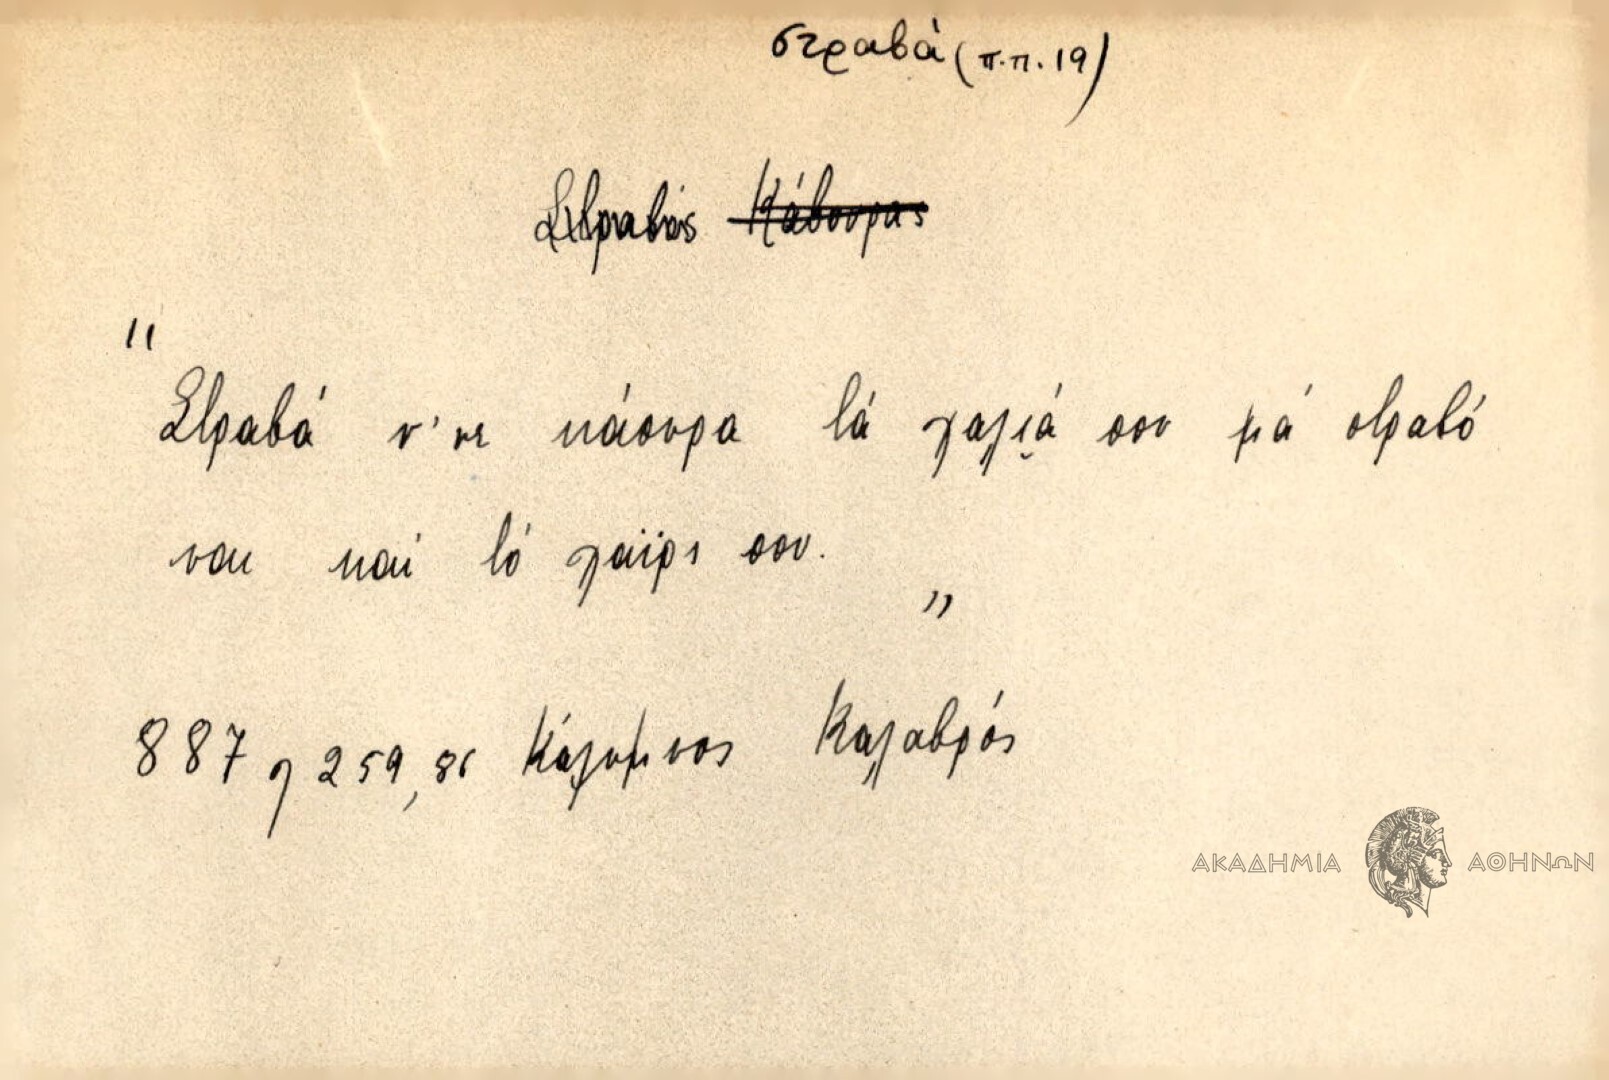 στραβά (π.π. 19)
Στραβός Κάβουρας
"Στραβά ν'νε κάουρα τά χαλιά σου μά στραβό
ναι καί τό χαΐρι σου."
887 259, Κάλυμνος Καλαβρός
ΑΚΑΔΗΜΙΑ ΑΘΗΝΩΝ